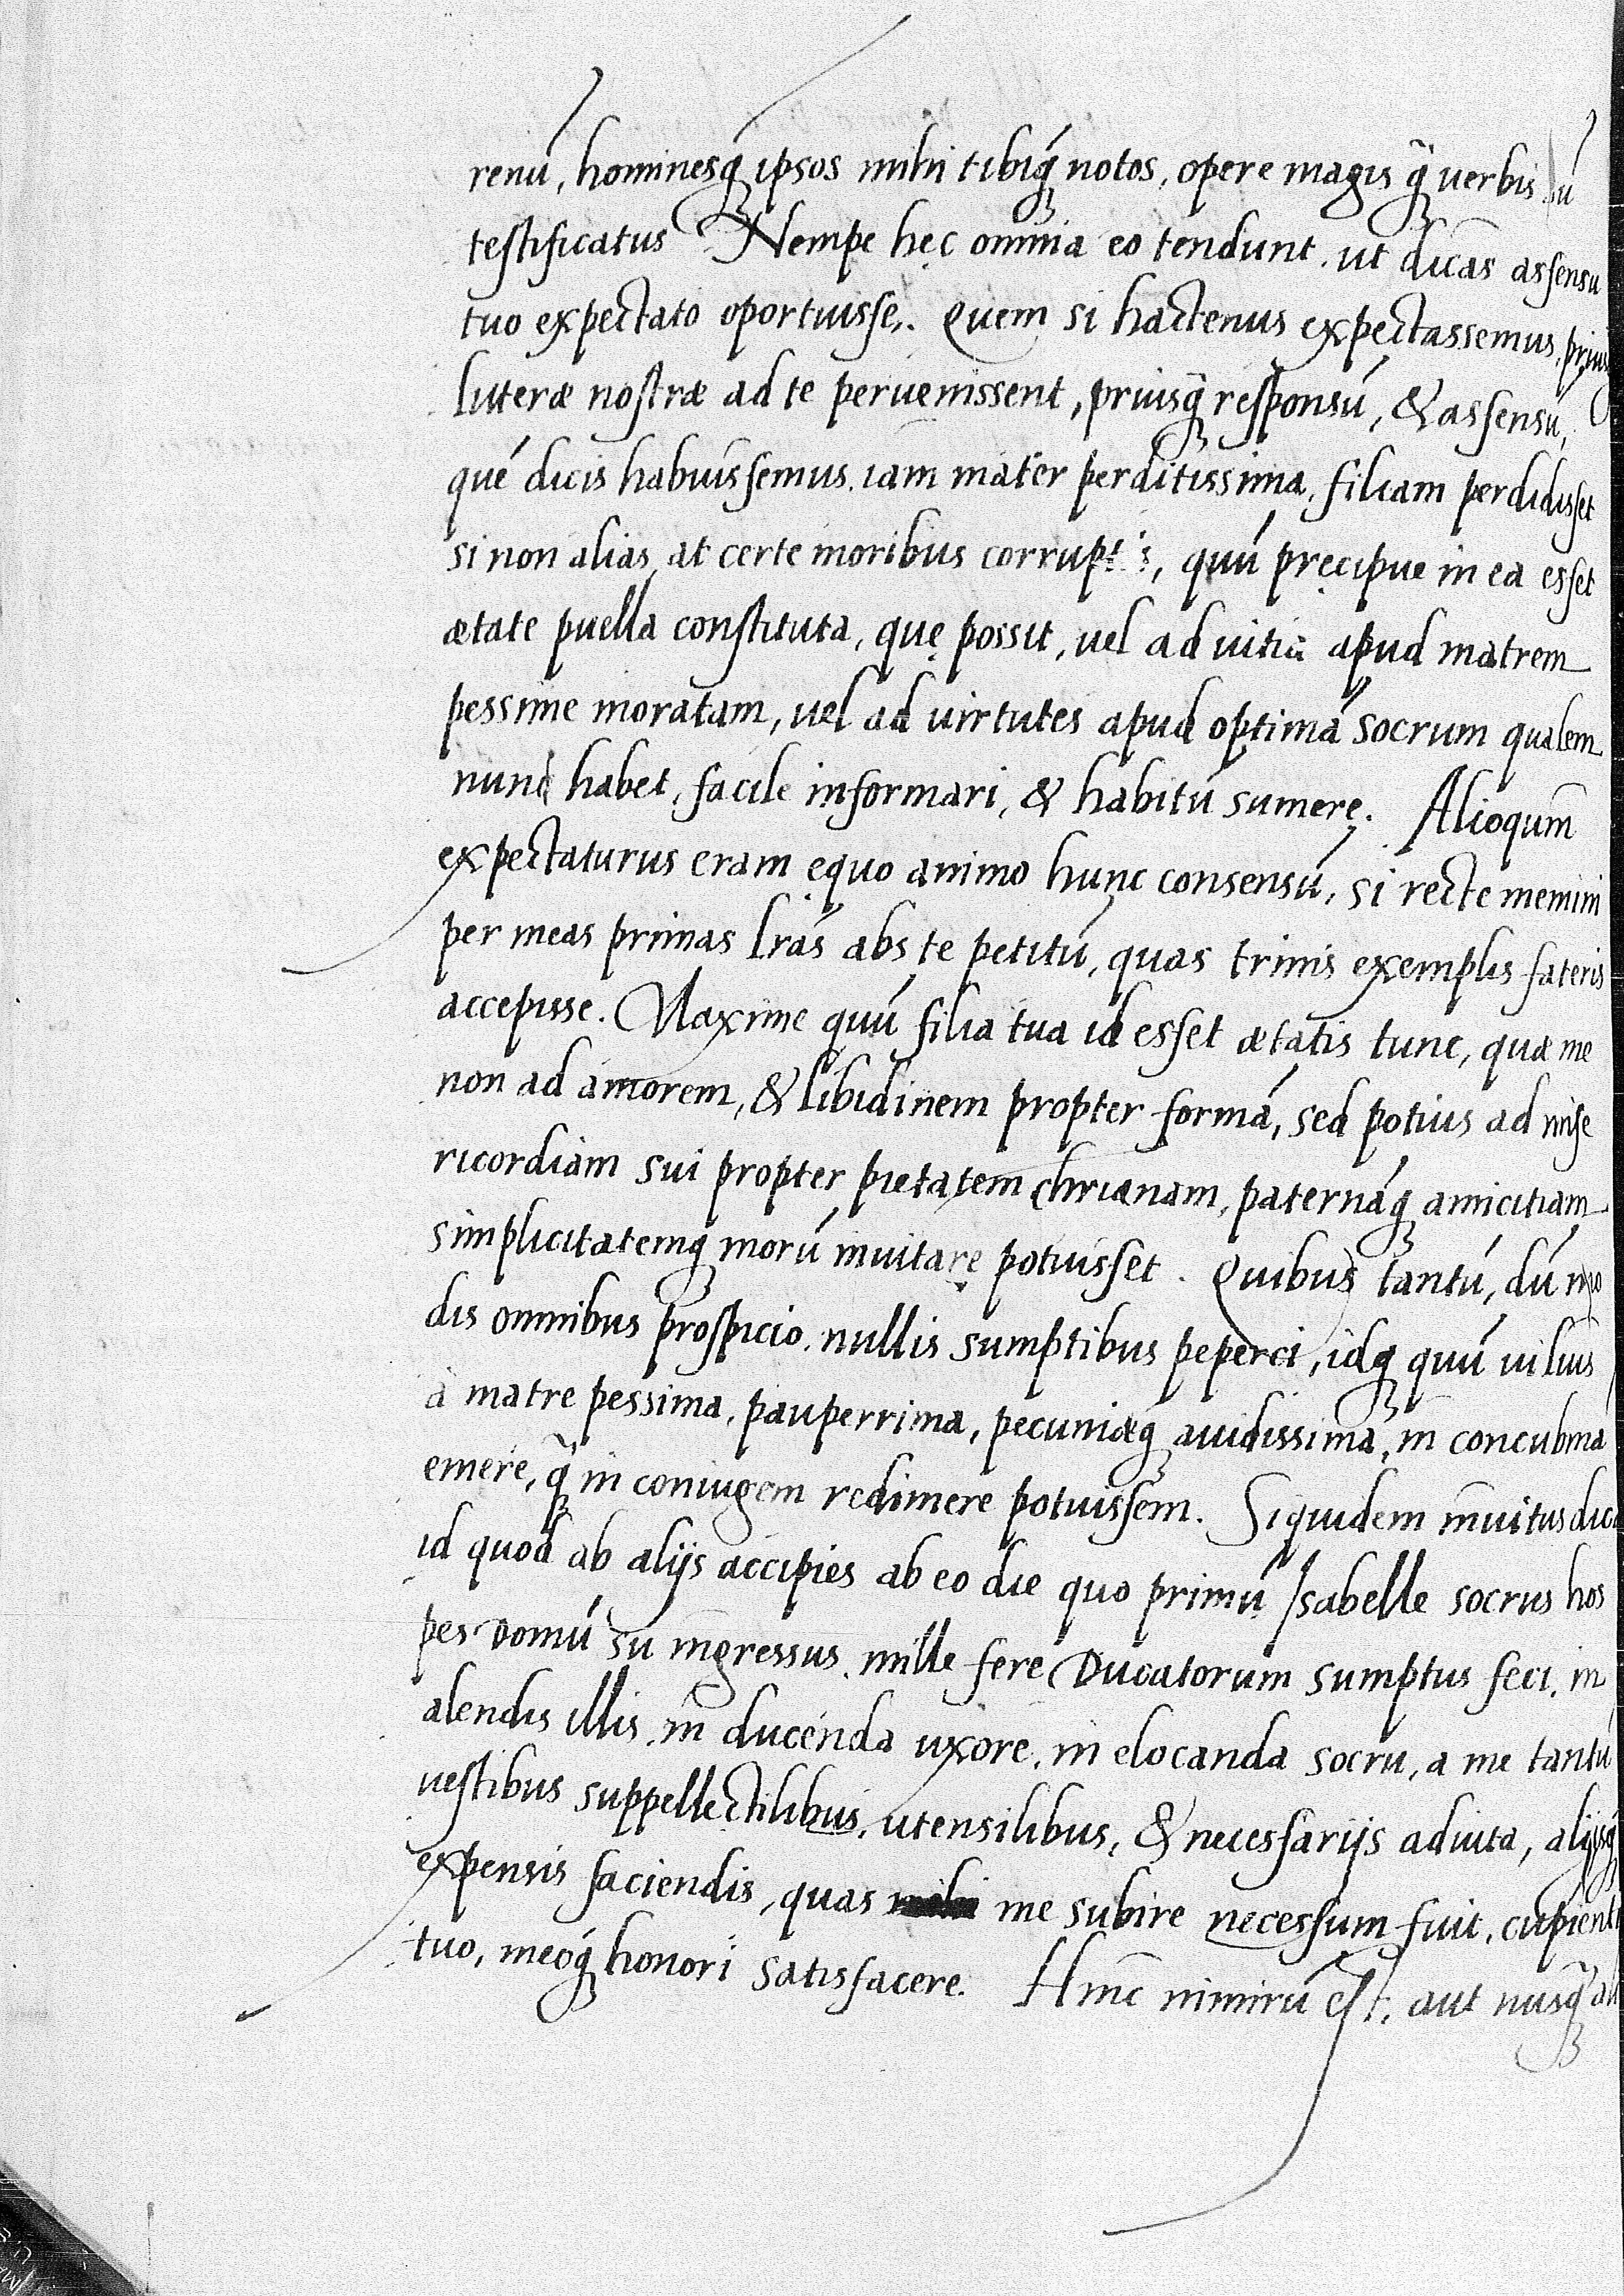 renū, hominesq́ꝫ ipsos mihi tibiq́ꝫ notos, opere magis q̃ꝫ uerbis sū
testificatus Nempe hęc omnia eo tendunt. ut dicas assensu
tuo expectato oportuisse. Quem si hactenus expectassemus, priusꝗ
litteræ nostræ ad te peruenissent, priusq̃ꝫ responsū, & assensū,
quē dicis habuissemus. iam mater perditissima, filiam perdidisset
si non alias, at certe moribus corruptis, quū pręcipue in ea esset
ætate puella constituta, quę possit, uel ad uitia apud matrem
pessime moratam, uel ad uirtutes apud optimā socrum qualem
nunc habet, facile informari, & habitū sumere. Alioquin
expectaturus eram ęquo animo hunc consensū, si recte memini
per meas primas lr̃as abs te petitū, quas trinis exemplis fateris
accepisse. Maxime quū filia tua id esset ætatis tunc, quæ me
non ad amorem, & libidinem propter formā, sed potius ad mise
ricordiam sui propter pietatem chrianam, paternāq́ꝫ amicitiam
simplicitatemq́ꝫ morū inuitare potuisset. Quibus tantū, dū mo
dis omnibus prospicio. nullis sumptibus peperci, idq́ꝫ quū uilius
à matre pessima, pauperrima, pecuniæq́ꝫ auidissima, in concubinā
emere, q̃ꝫ in coniugem redimere potuissem. Siquidem inuitus dico
id quod ab alijs accipies ab eo die quo primū Isabelle socrus hos
pes domū sū ingressus. mille fere Ducatorum sumptus feci. in
alendis illis. in ducenda uxore. in elocanda socru, a me tantū
uestibus suppellectilibus. utensilibus, & necessarijs adiuta, alijsq́ꝫ
expensis faciendis, quas me subire necessum fuit, cupienti
tuo, meoq́ꝫ honori satisfacere. Hinc nimirū est, aut nusq̃ꝫ